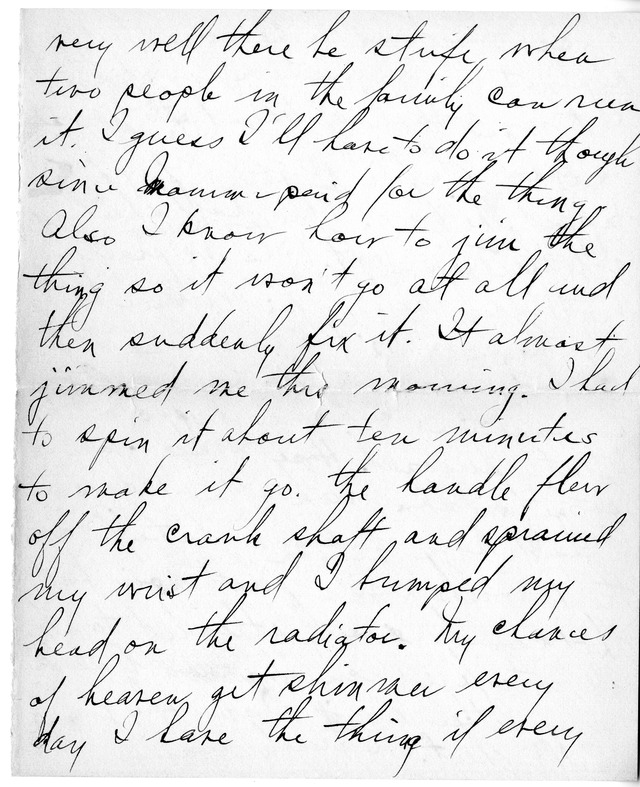 very well there be strife when
two people in the family can run
it. I guess I'll have to do it though
since Mamma paid for the thing.
Also I know how to jim the
thing so it won't go at all and
then suddenly fix it. It almost
jimmed me this morning. I had
to spin it about ten minutes
to make it go. The handle flew
off the crank shaft and sprained
my wrist and I bumped my
head on the radiator. My chances
of heaven get slimmer every
day I have the thing if every